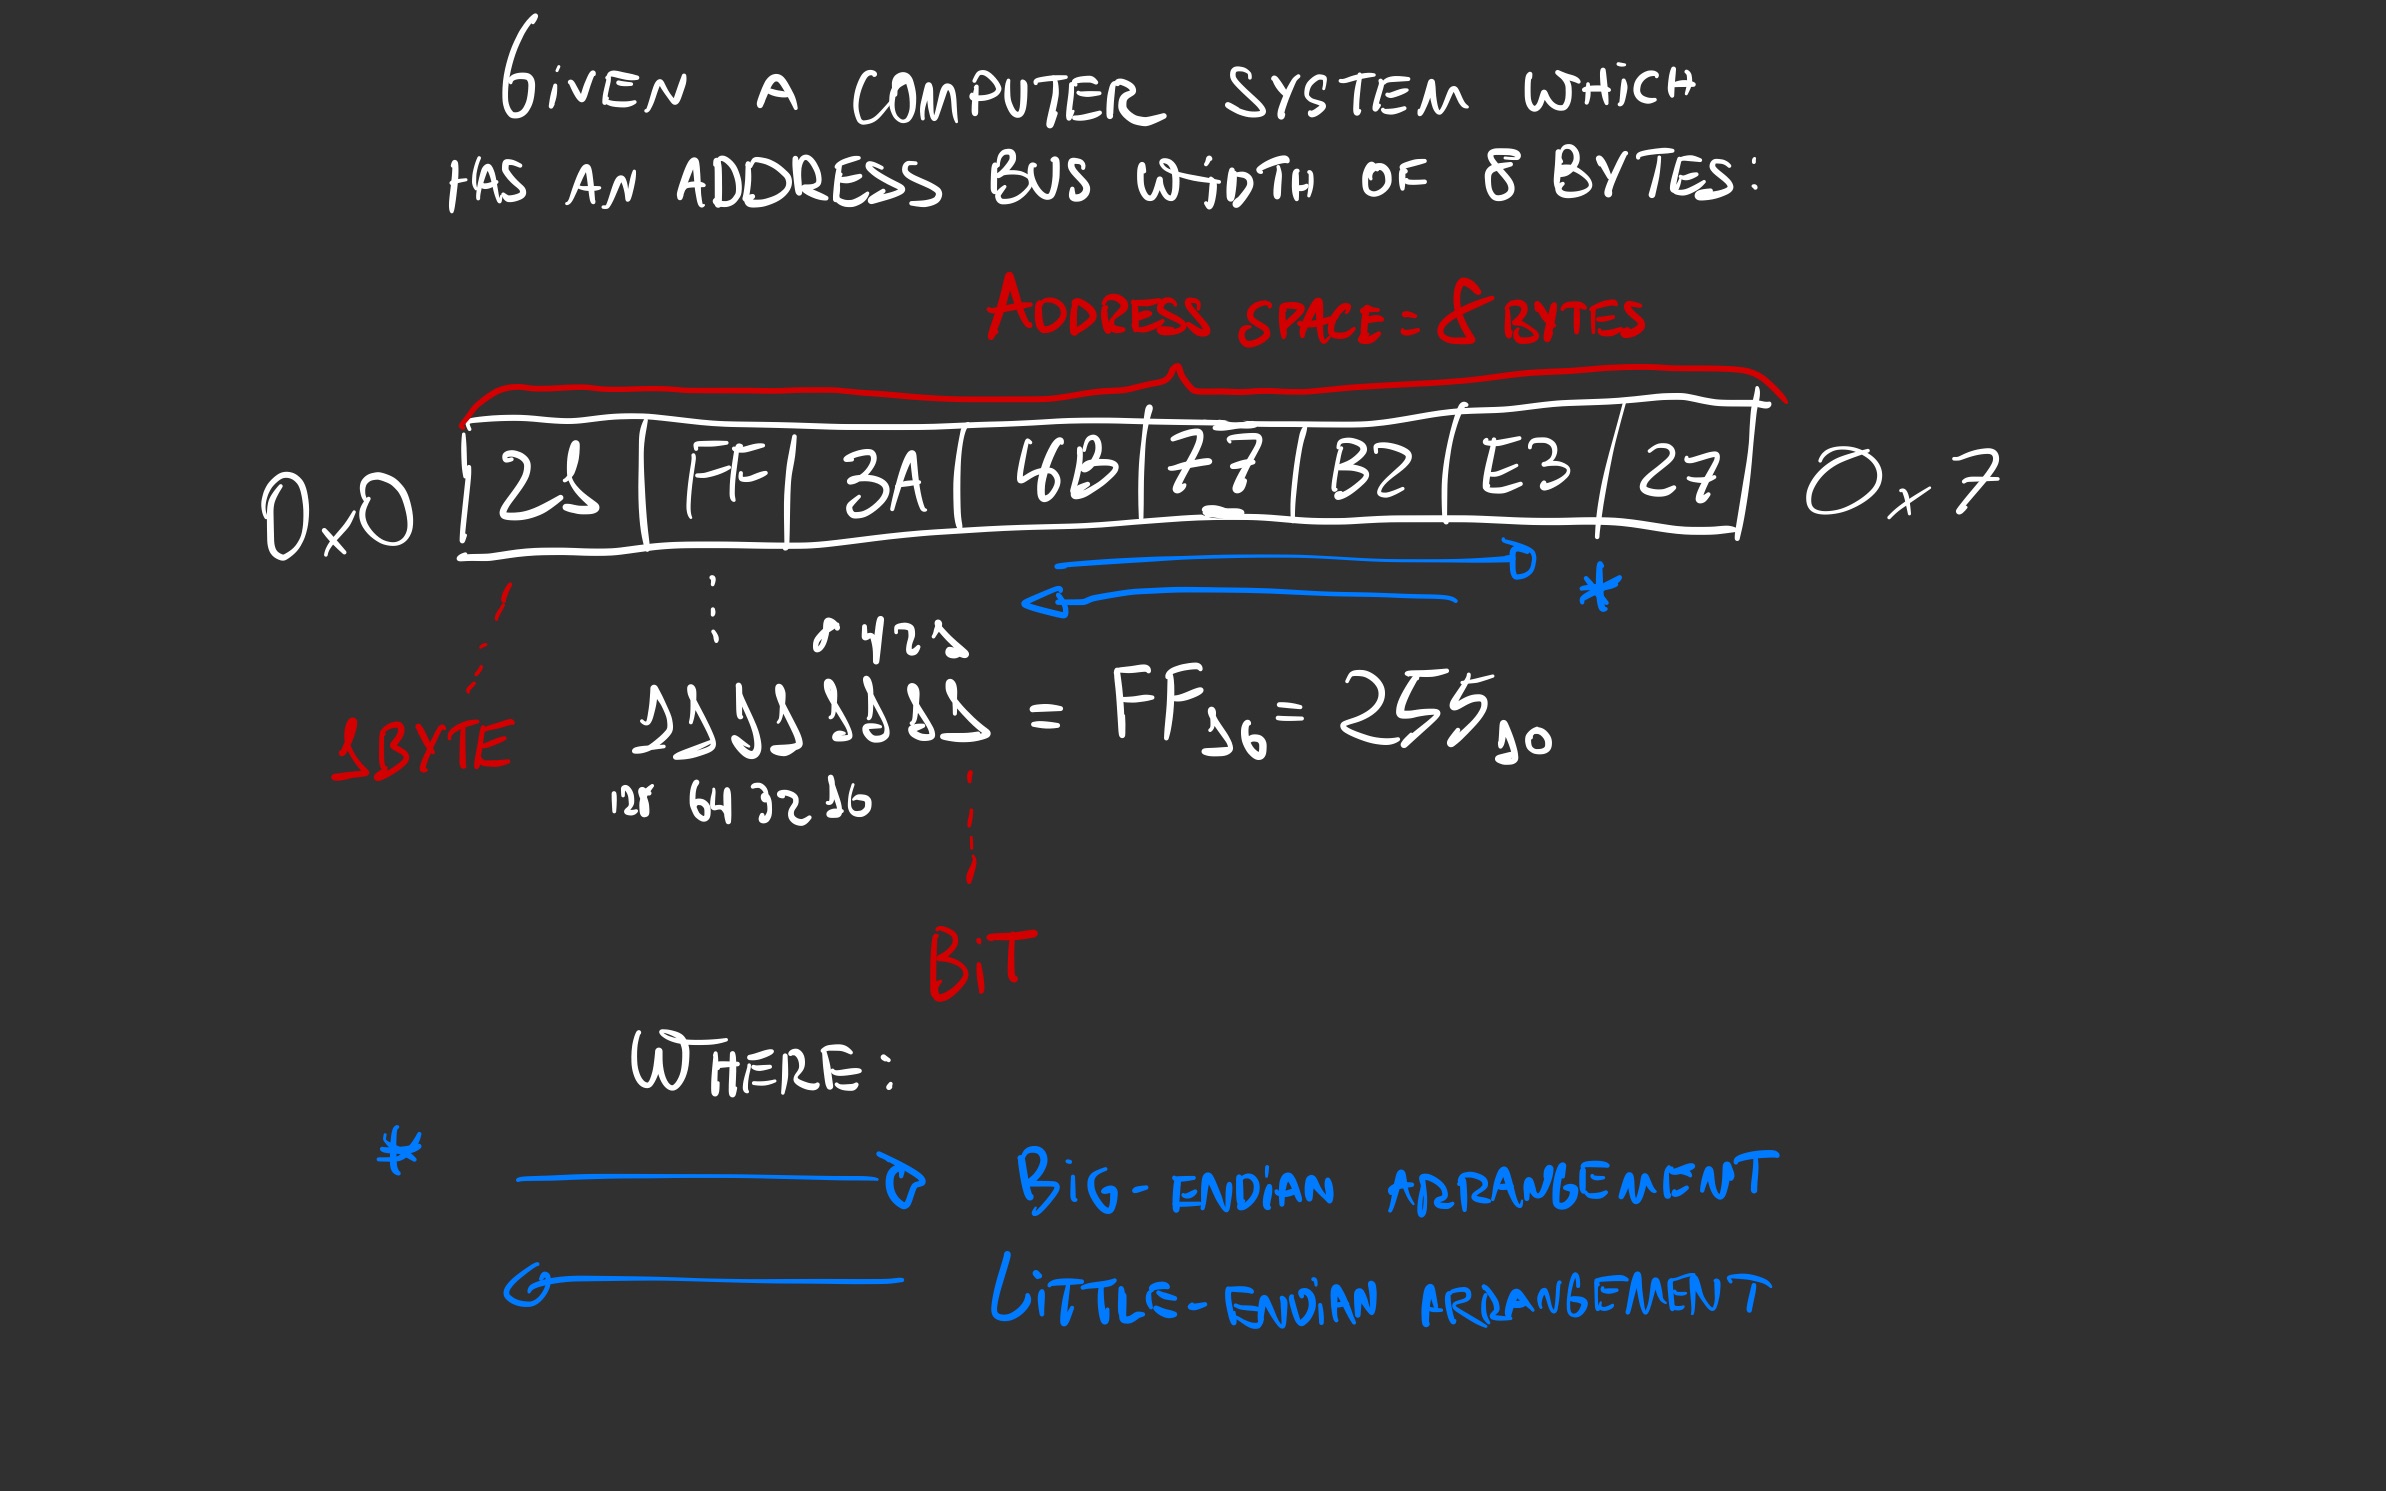 GiVEN A COMPUTER SYSTEM WHICH
HAS AN ADDRESS BUS WIDTH OF 8 BYTES:
ADDRESS SPACE = 8 BYTES
0x0 21 FF 3A 6B 77 B2 E3 27 0x7
*
8 4 2 1
1 BYTE 11111111 = FF16 = 25510
128 64 32 16
BiT
WHERE:
* BiG-ENDiAN ARRANGEMENT
LiTTLE-ENDiAN ARRANGEMENT